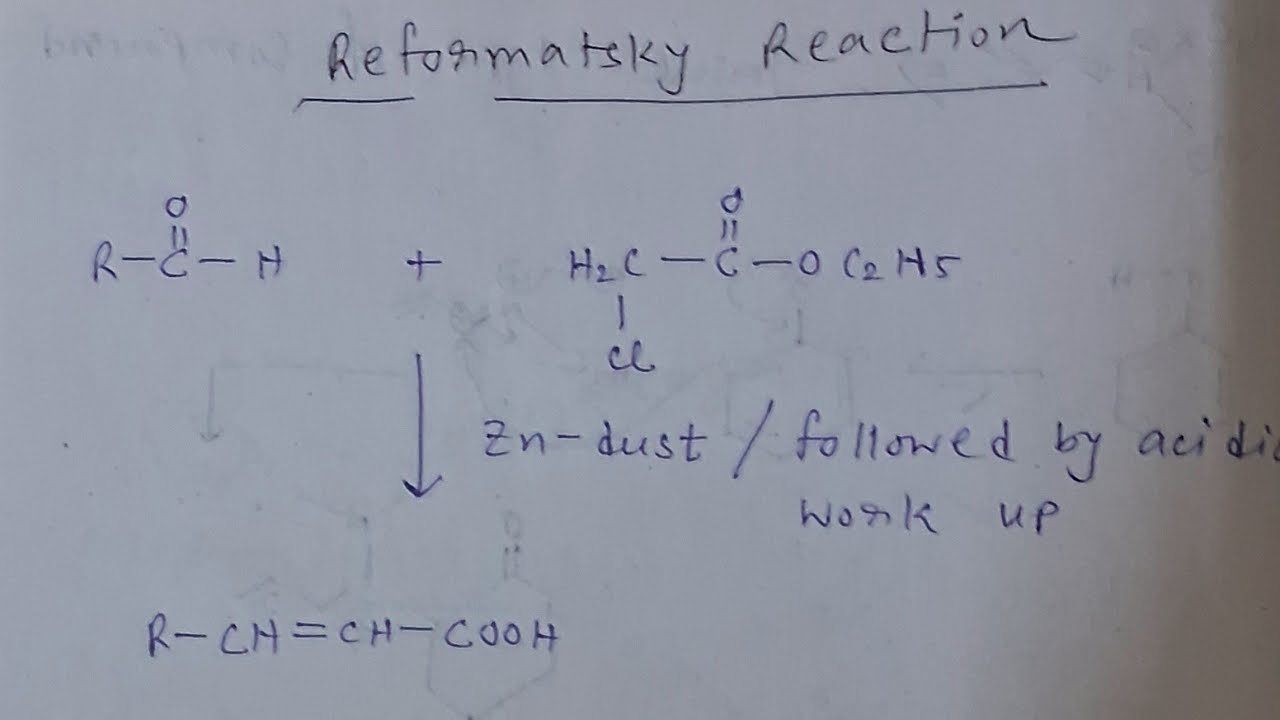 Reformatsky Reaction
O O
|| ||
R-C-H + H2C-C-OC2H5
|
Cl
Zn-dust / followed by acidic
work up
R-CH=CH-COOH